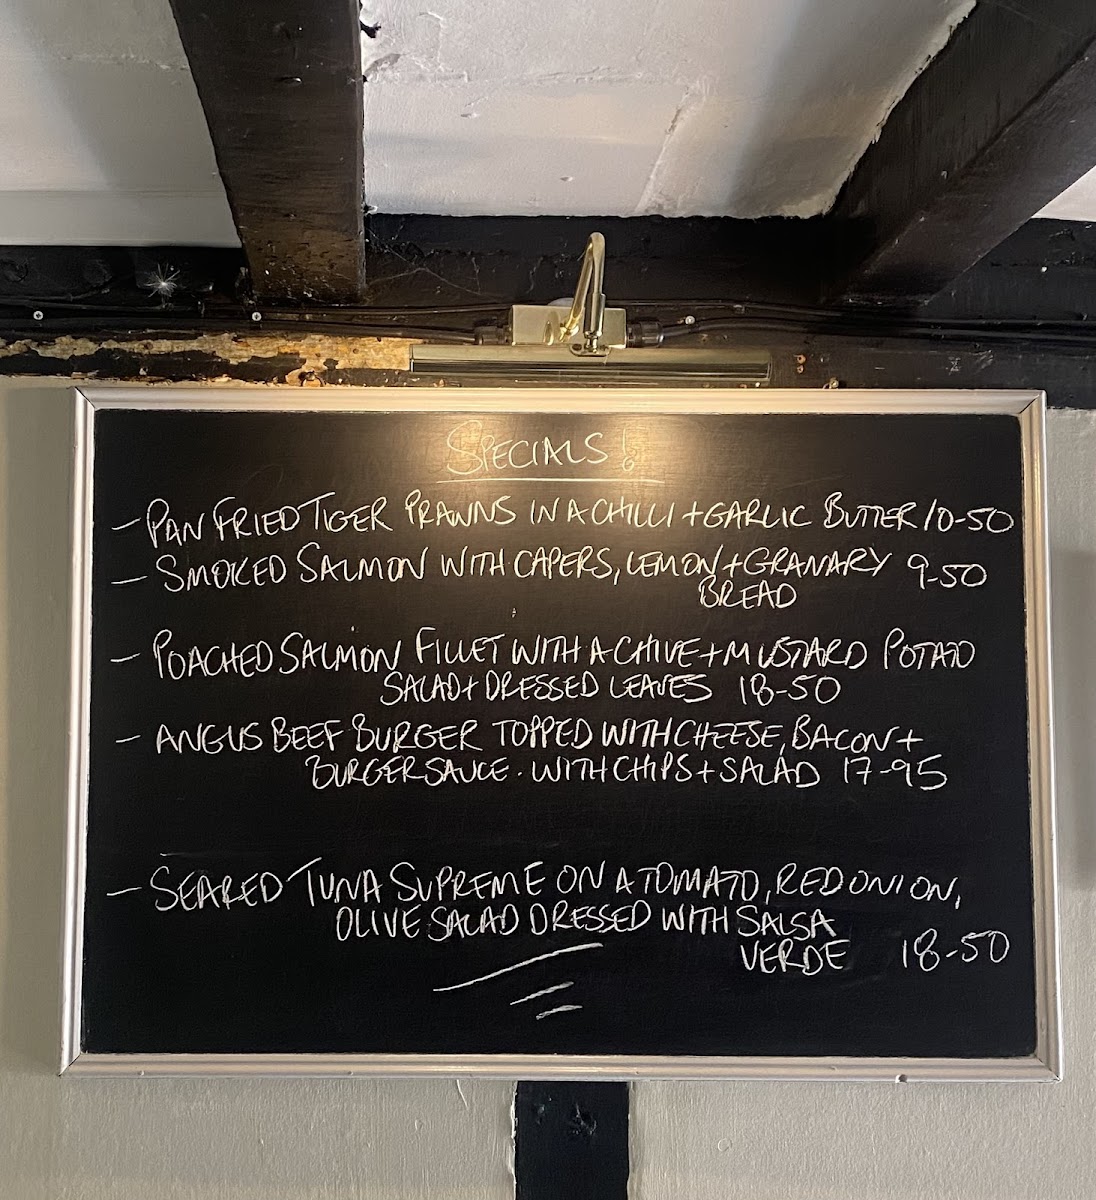 SPECIALS!
- PAN FRIED TIGER PRAWNS IN A CHILLI + GARLIC BUTTER 10-50
- SMOKED SALMON WITH CAPERS, LEMON + GRANARY 9-50
BREAD
- POACHED SALMON FILLET WITH A CHIVE + MUSTARD POTATO
SALAD + DRESSED LEAVES 18-50
- ANGUS BEEF BURGER TOPPED WITH CHEESE, BACON +
BURGER SAUCE. WITH CHIPS + SALAD 17-95
- SEARED TUNA SUPREME ON A TOMATO, RED ONION,
OLIVE SALAD DRESSED WITH SALSA
VERDE 18-50